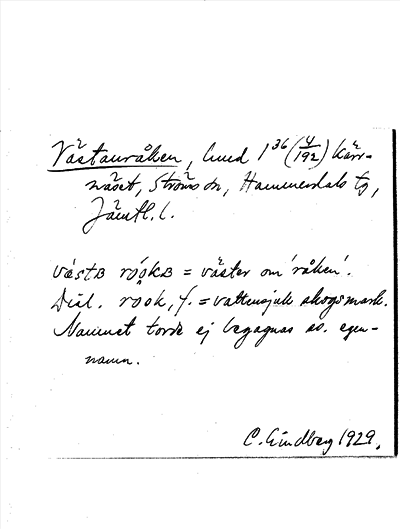 Västanråken, hmd 1³⁶(4/192) Kärr-
näset, Ströms sn, Hammerdals tg,
Jämtl. l.
våstʙ rǫ́ǫkʙ = väster om 'råken'.
Dial. rǫǫk, f. = vattensjuk skogsmark.
Namnet torde ej begagnas ss. egen-
namn.
C. Lindberg 1929.